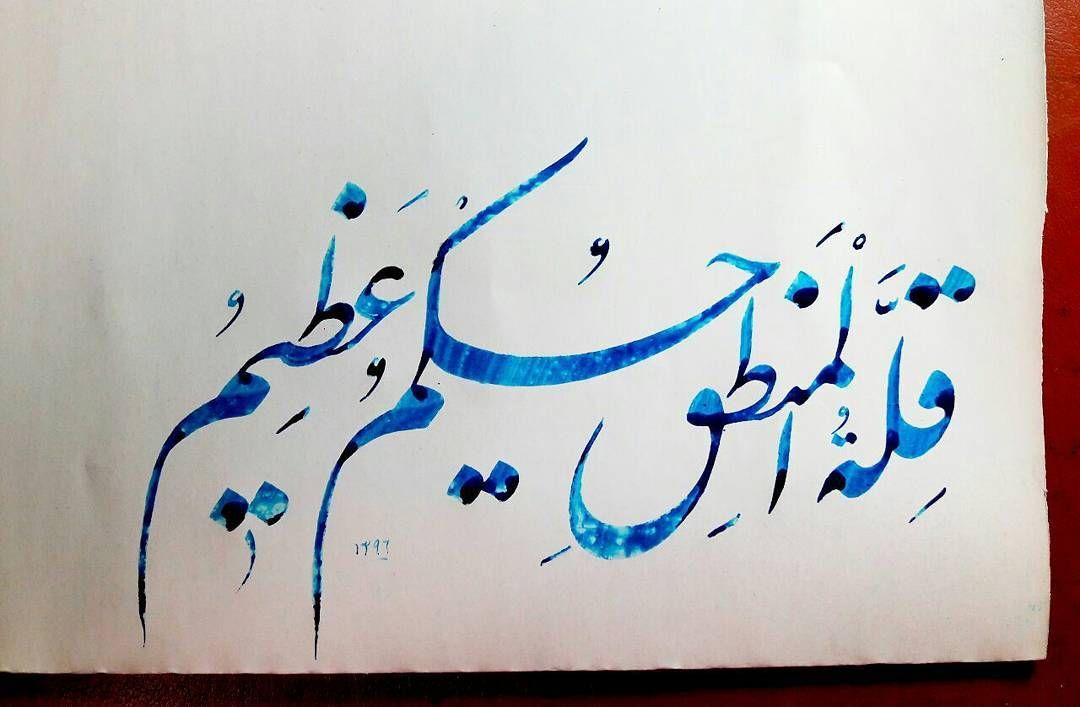 قِلَّةُ الْمَنطِقِ حُکیمٌ عَظِیمٌ
۱۳۹۶